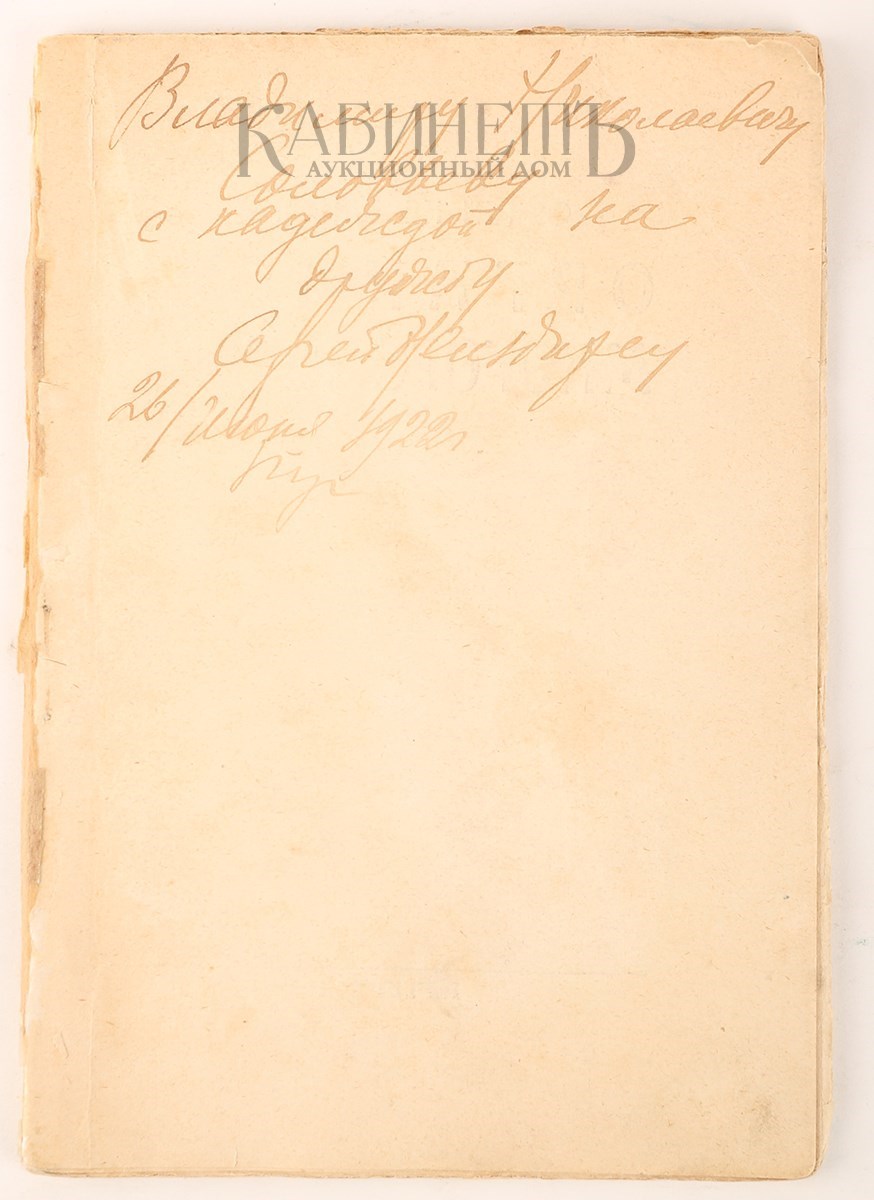 Владимиру Николаевичу
КАБИНЕТЪ
АУКЦИОННЫЙ ДОМ
Соловьеву
с надеждой на
дружбу
Сергей
26/июня 1922 г.